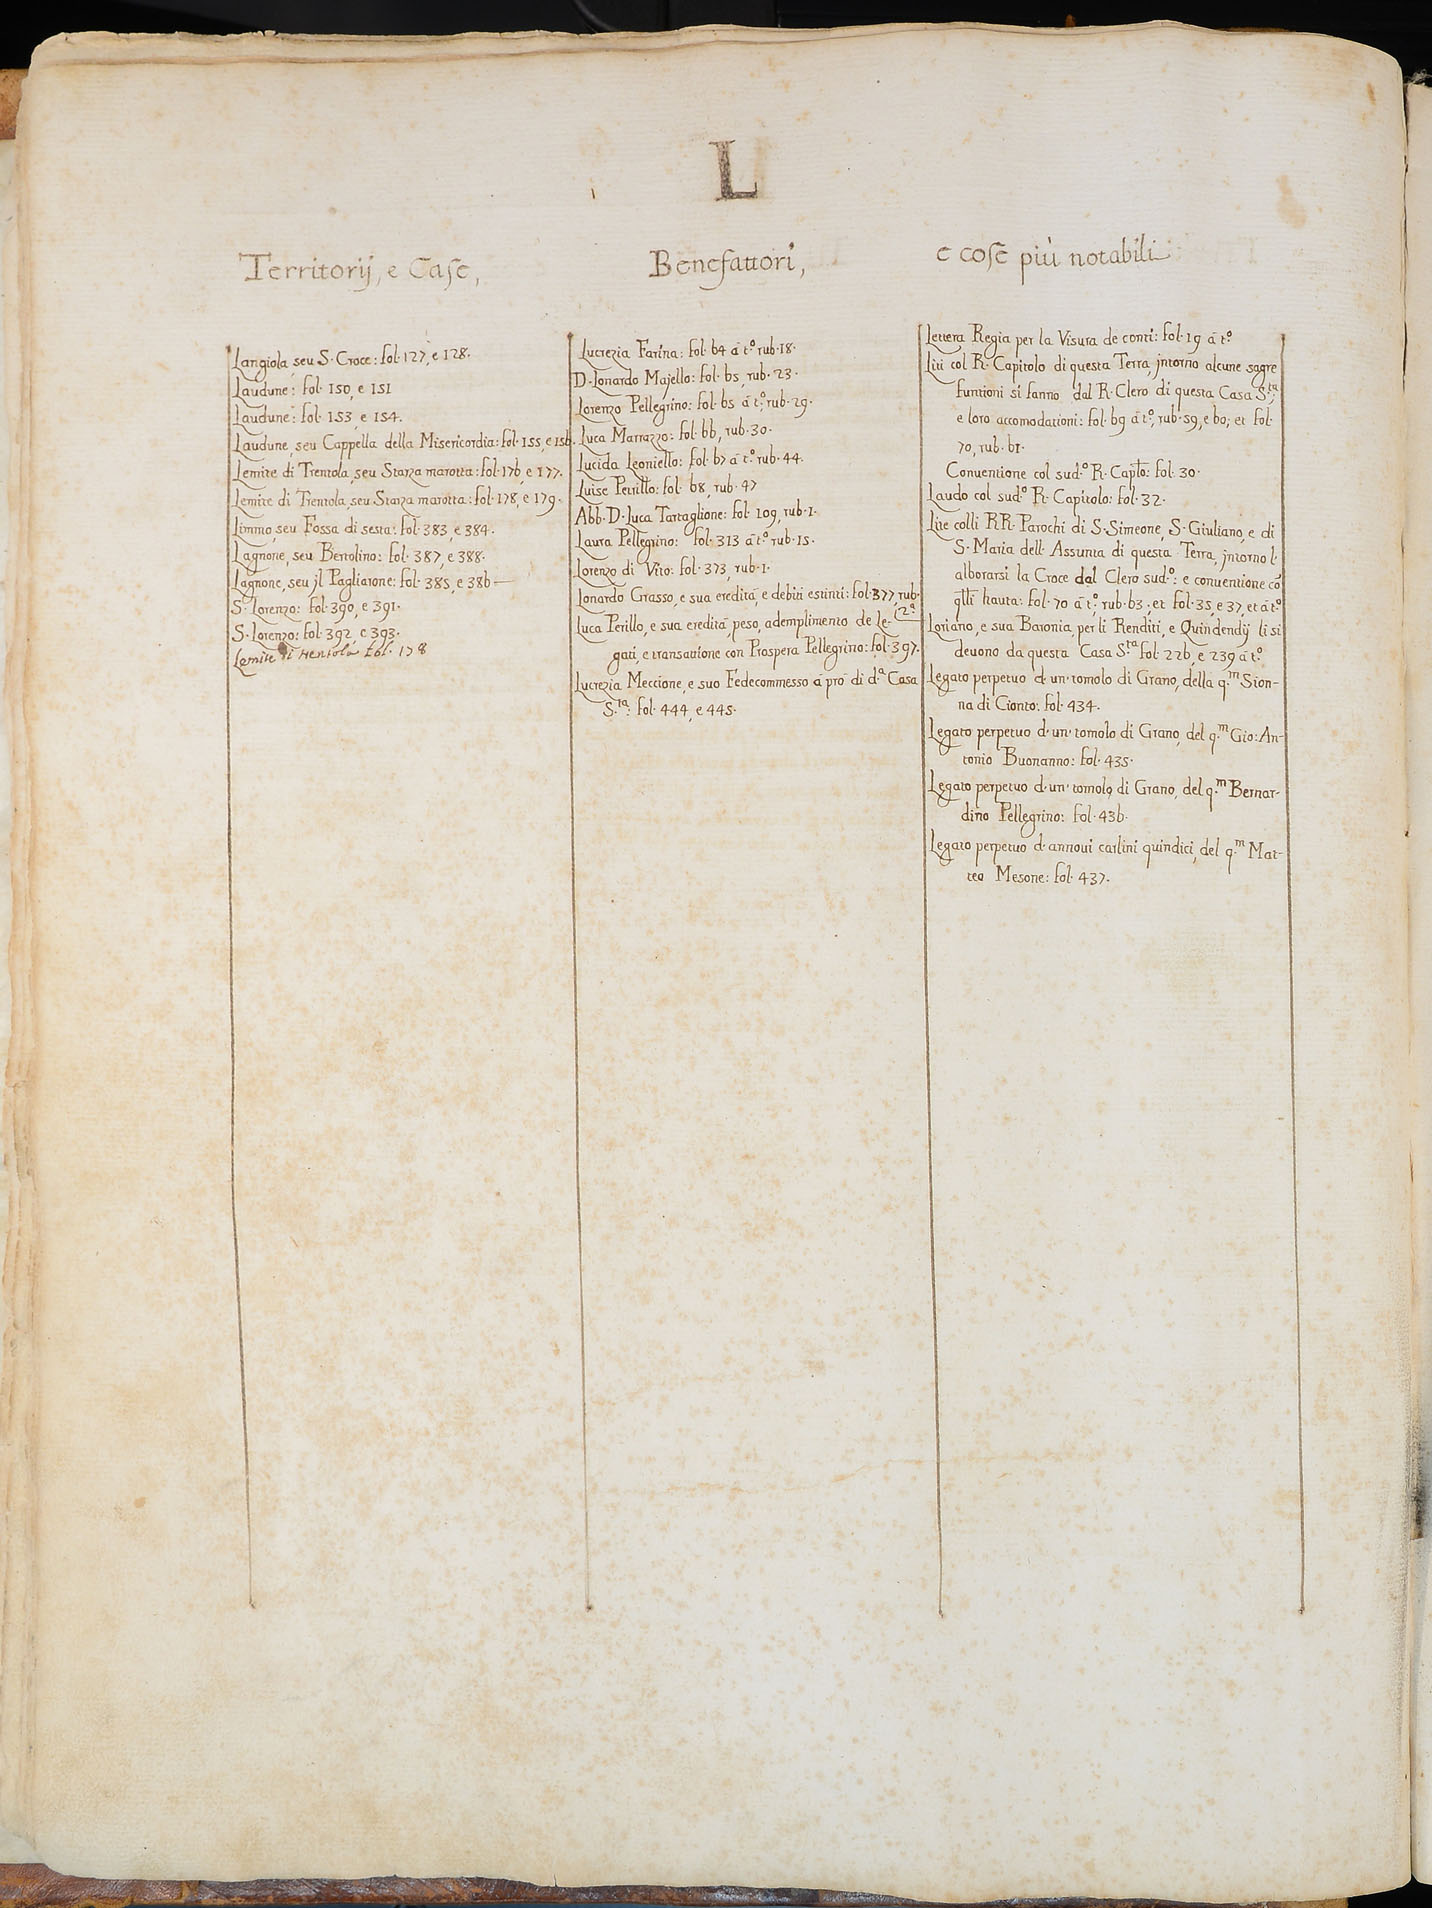 L
Territorij, e Case,
Langiola, seu S. Croce: fol. 127, e 128.
Laudune: fol. 150, e 151
Laudune: fol. 153, e 154.
Laudune, seu Cappella della Misericordia: fol. 155, e 156.
Lemite di Trentola, seu Starza marotta: fol. 176, e 177.
Lemite di Trentola, seu Starza marotta: fol. 178, e 179.
Limmo, seu Fossa di sesta: fol. 383, e 384.
Lagnone, seu Bertolino: fol. 387, e 388.
Lagnone, seu jl Pagliarone: fol. 385, e 386
S. Lorenzo: fol. 390, e 391.
S. Lorenzo: fol. 392, e 393.
Lemite di Trentola fol. 178
Benefattori,
Lucrezia Farina: fol. 64 à t.º rub. 18.
D. Lonardo Majello: fol. 65, rub. 23.
Lorenzo Pellegrino: fol. 65 à t.º, rub. 29.
Luca Marrazzo: fol. 66, rub. 30.
Lucida Leoniello: fol. 67 à t.º rub. 44.
Luise Perrillo: fol. 68, rub. 47
Abb. D. Luca Tartaglione: fol. 109, rub. 1.
Laura Pellegrino: fol. 313 à t.º rub. 15.
Lorenzo di Vito: fol. 373, rub. 1.
Lonardo Grasso, e sua eredità, e debiti estinti: fol. 377, rub.
2ª
Luca Perillo, e sua eredità, peso, adempimento de Le-
gati, e transattione con Prospera Pellegrino: fol. 397.
Lucrezia Meccione, e suo Fedecommesso à prò di d.ª Casa
S.ta: fol. 444, e 445.
e cose più notabili
Lettera Regia per la Visura de conti: fol. 19 à t.º
Liti col R. Capitolo di questa Terra, jntorno alcune sagre
funtioni si fanno dal R. Clero di questa Casa S.ta,
e loro accomodationi: fol. 69 à t.º, rub. 59, e 60; et fol.
70, rub. 61.
Conventione col sud.º R. Capitlo: fol. 30.
Laudo col sud.º R. Capitolo: fol. 32.
Lite colli RR. Parochi di S. Simeone, S. Giuliano, e di
S. Maria dell' Assunta di questa Terra, jntorno l'
alborarsi la Croce dal Clero sud.º: e conventione cō
q̄lli hauta: fol. 70 à t.º, rub. 63; et fol. 35, e 37, et à t.º
Loriano, e sua Baronia, per li Renditi, e Quindendij li si
devono da questa Casa S.ta fol. 226, e 239 à t.º
Legato perpetuo d'un' tomolo di Grano, della q.m Sion-
na di Cionto: fol. 434.
Legato perpetuo d'un' tomolo di Grano, del q.m Gio: An-
tonio Buonanno: fol. 435.
Legato perpetuo d'un' tomolo di Grano, del q.m Bernar-
dino Pellegrino: fol. 436.
Legato perpetuo d'annoui carlini quindici, del q.m Mat-
teo Mesone: fol. 437.